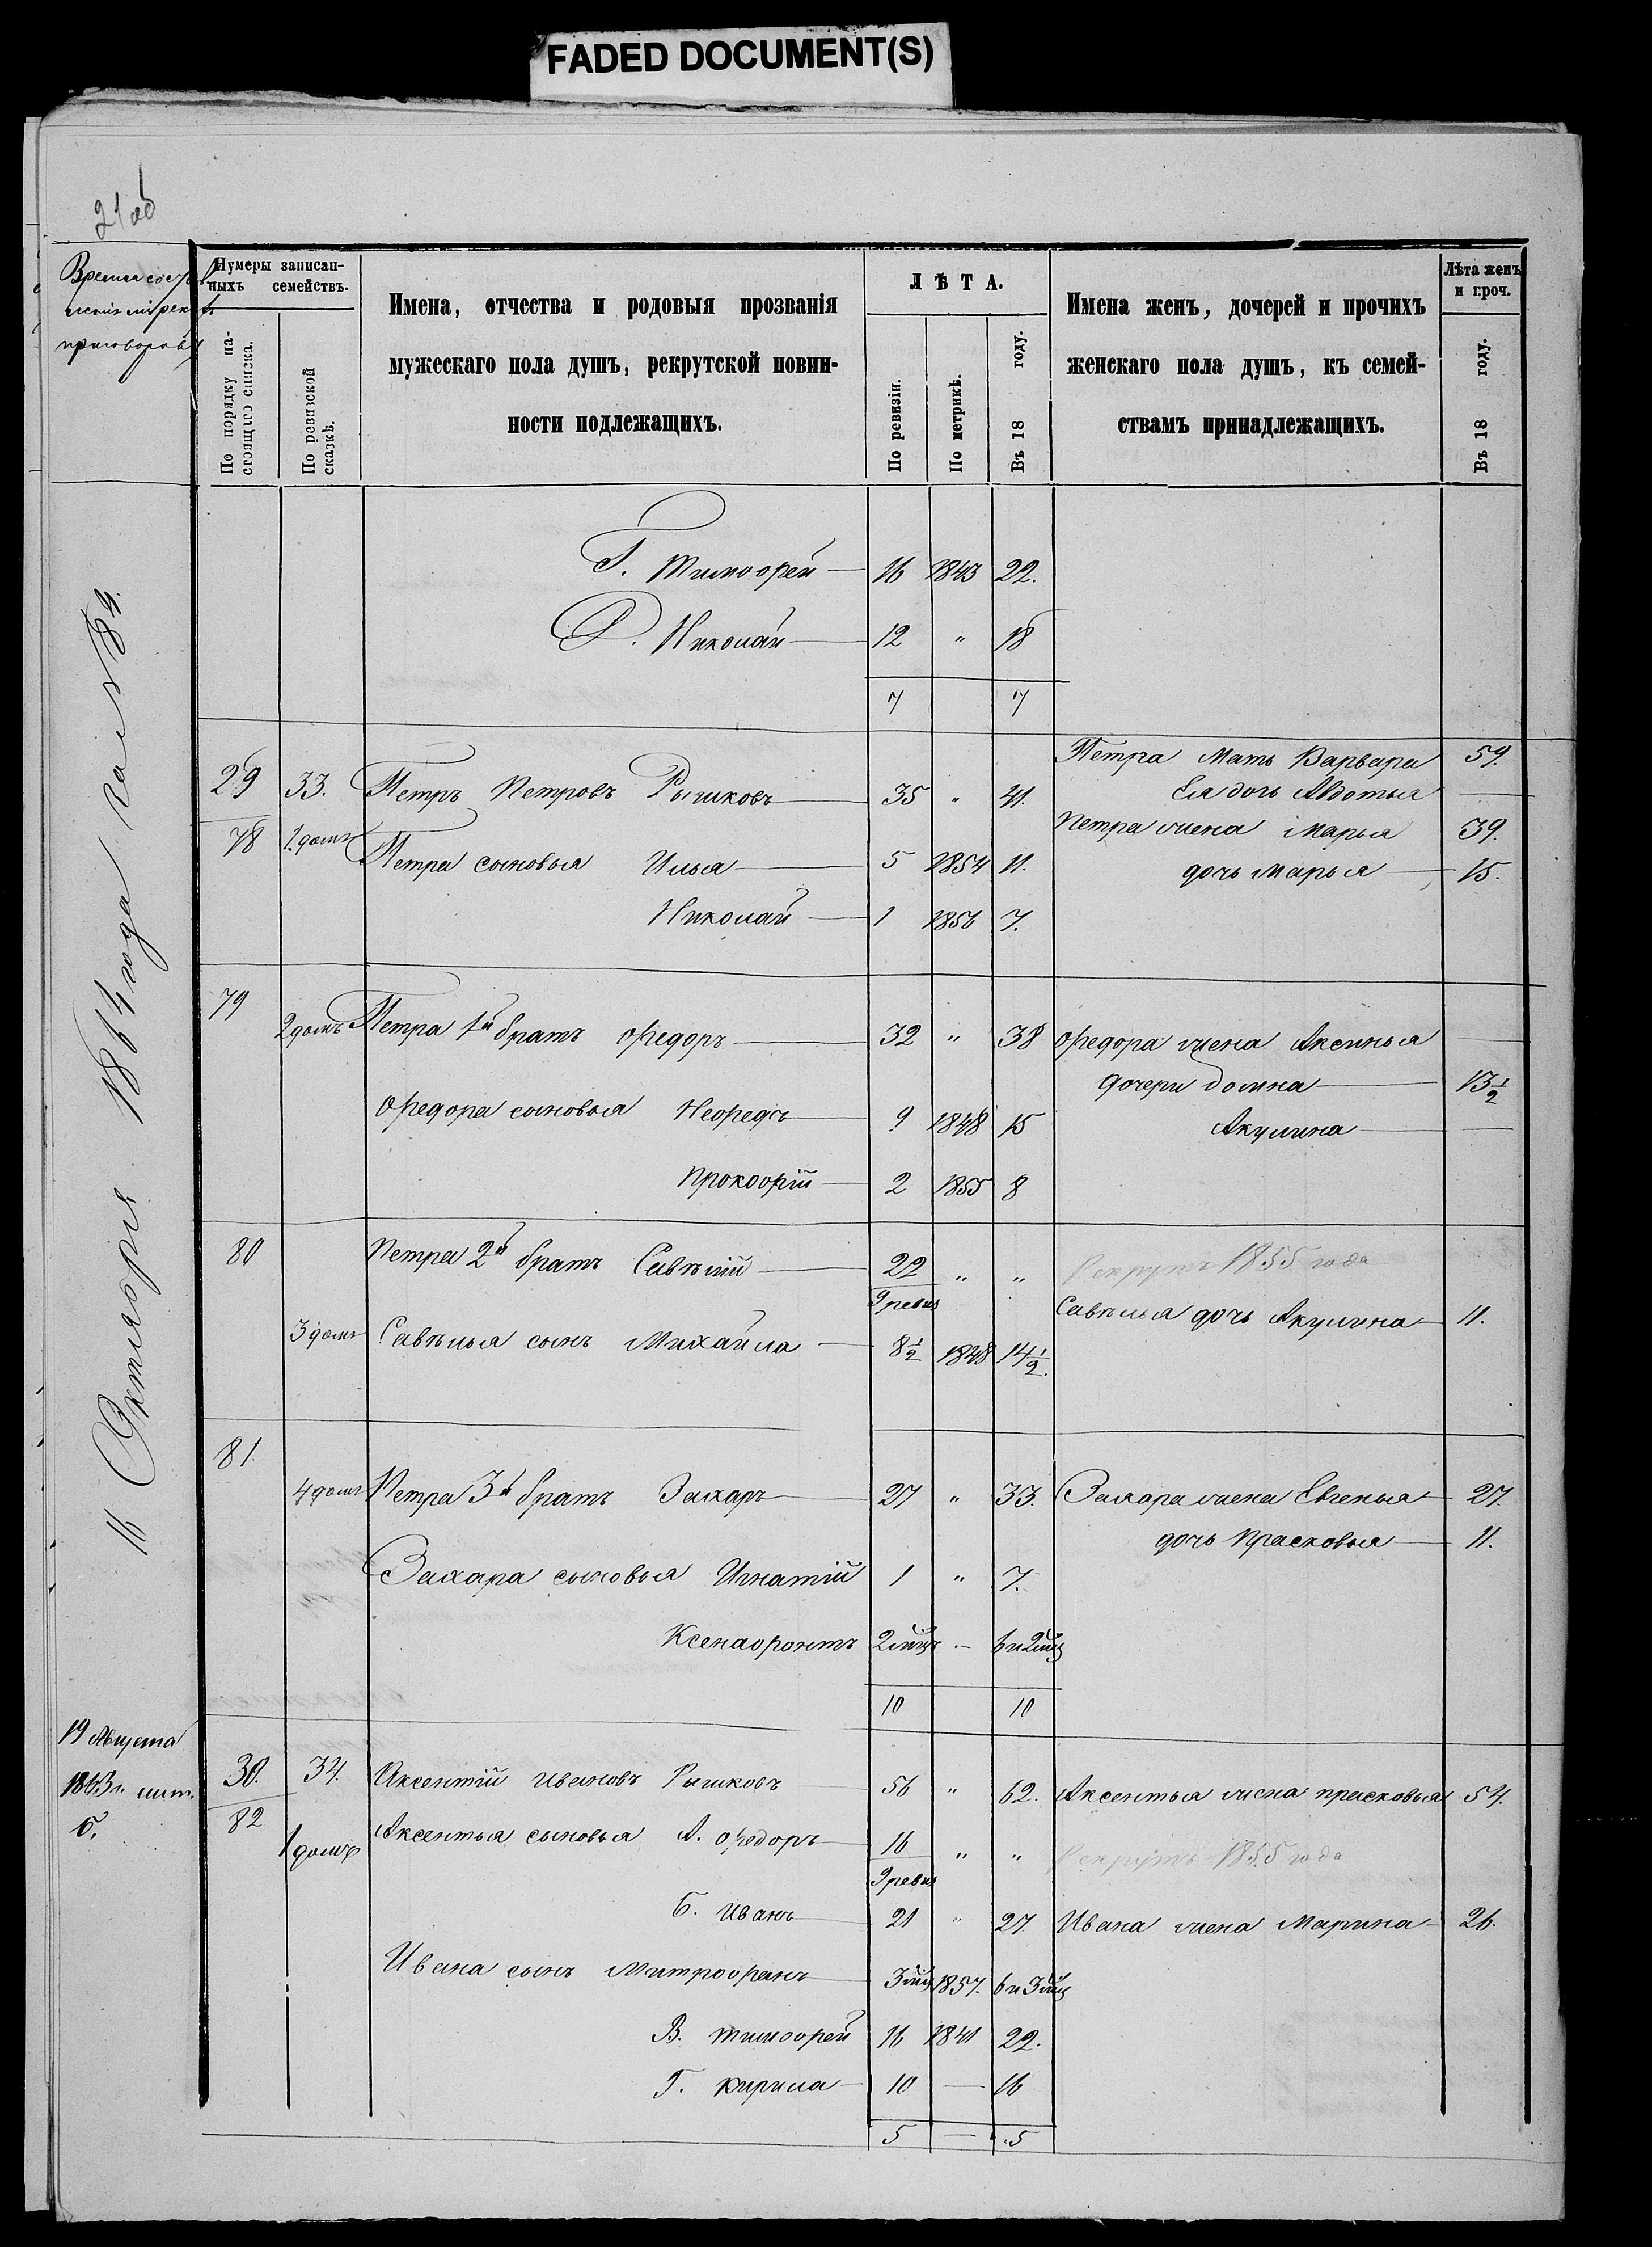 FADED DOCUMENT(S)
21 об
Время сос
приговоровъ
Нумеры записан-
ныхъ семействъ.
По порядку на-
стоящаго списка.
По ревизской
сказкѣ.
Имена, отчества и родовыя прозванія
мужескаго пола душъ, рекрутской повин-
ности подлежащихъ.
ЛѢТА.
По ревизіи.
По метрикѣ.
Въ 18 году.
Имена женъ, дочерей и прочихъ
женскаго пола душъ, къ семей-
ствамъ принадлежащихъ.
Лѣта женъ
и проч.
Въ 18 году.
Г. Тимофей 16 1843 22.
Д. Николай 12 " 18
7 7
Петра мать Варвара 59.
29 33. Петръ Петровъ Рышковъ 35 " 41. Ея дочь Авдотья
78 1. домъ Петра жена Марья 39.
Петра сыновья Илья 5 1854 11. дочь Марья 15.
Николай 1 1856 7.
79 2 домъ Петра 1й братъ Федоръ 32 " 38 Федора жена Аксинья
дочери Домна 13½
Федора сыновья Нефедъ 9 1848 15 Акулина
Прокофій 2 1855 8
80 Петра 2й братъ Савѣлій 22 " " Рекрутъ 1855 года
9 ревиз
Савѣлья дочь Акулина 11.
3 домъ Савѣлья сынъ Михайла 8½ 1848 14½.
81.
4 домъ Петра 3й братъ Захаръ 27 " 33. Захара жена Евгенья 27.
дочь Прасковья 11.
Захара сыновья Игнатій 1 " 7.
Ксенофонтъ 2 мцъ - 6 и 2 мц
10 10
16 Октября 1864 года
19 Августа
1863 г.
30. 34. Аксентій Ивановъ Рышковъ 56 " 62. Аксентья жена Прасковья 54.
82 1 домъ Аксентья сыновья А. Федоръ 16 " " Рекрутъ 1855 года
9 ревиз
Б. Иванъ 21 " 27. Ивана жена Марина 26.
Ивана сынъ Митрофанъ 3 мц 1857. 6 и 3 мц
В. Тимофей 16 1841 22.
Г. Кирила 10 — 16
5 — 5